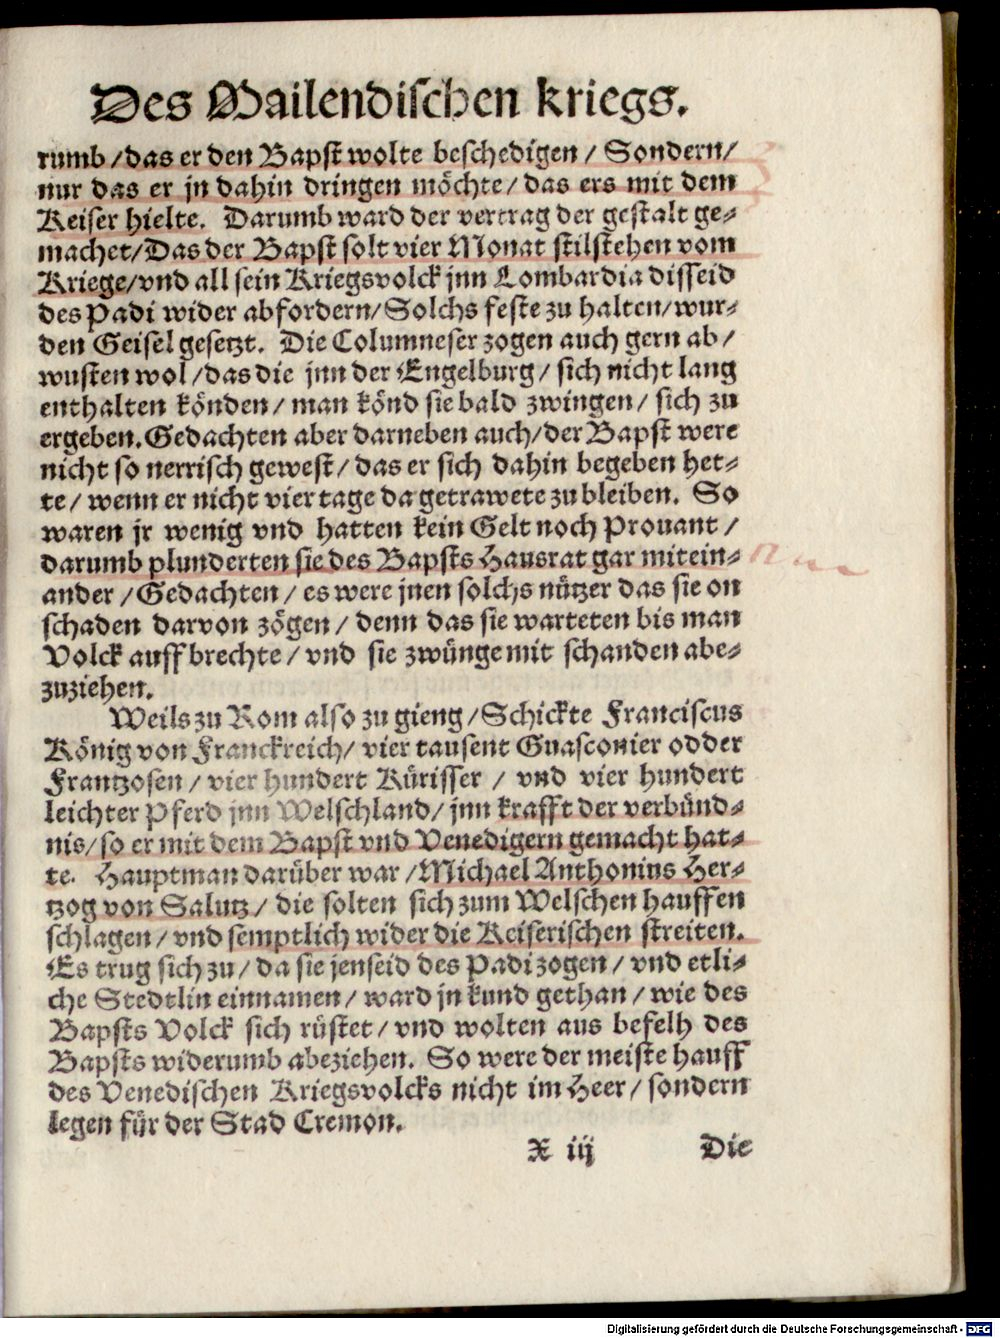 Des Mailendischen kriegs.
rumb / das er den Bapst wolte beschedigen / Sondern /
nur das er jn dahin dringen möchte / das ers mit dem
Keiser hielte. Darumb ward der vertrag der gestalt ge-
machet / Das der Bapst solt vier Monat stilstehen vom
Kriege / vnd all sein Kriegsvolck jnn Lombardia disseid
des Padi wider abfordern / Solchs feste zu halten / wur-
den Geisel gesetzt. Die Columneser zogen auch gern ab /
wusten wol / das die jnn der Engelburg / sich nicht lang
enthalten könden / man könd sie bald zwingen / sich zu
ergeben. Gedachten aber darneben auch / der Bapst were
nicht so nerrisch gewest / das er sich dahin begeben het-
te / wenn er nicht vier tage da getrawete zu bleiben. So
waren jr wenig vnd hatten kein Gelt noch Prouant /
darumb plunderten sie des Bapsts Hausrat gar mitein-
ander / Gedachten / es were jnen solchs nützer das sie on
schaden darvon zögen / denn das sie warteten bis man
Volck auff brechte / vnd sie zwünge mit schanden abe-
zuziehen.
Weils zu Rom also zu gieng / Schickte Franciscus
König von Franckreich / vier tausent Guasconier odder
Frantzosen / vier hundert Kürisser / vnd vier hundert
leichter Pferd jnn Welschland / jnn krafft der verbünd-
nis / so er mit dem Bapst vnd Venedigern gemacht hat-
te. Hauptman darüber war / Michael Anthonius Her-
tzog von Salutz / die solten sich zum Welschen hauffen
schlagen / vnd semptlich wider die Keiserischen streiten.
Es trug sich zu / da sie jenseid des Padi zogen / vnd etli-
che Stedtlin einnamen / ward jn kund gethan / wie des
Bapsts Volck sich rüstet / vnd wolten aus befelh des
Bapsts widerumb abeziehen. So were der meiste hauff
des Venedischen Kriegsvolcks nicht im Heer / sondern
legen für der Stad Cremon.
X iij Die
Digitalisierung gefördert durch die Deutsche Forschungsgemeinschaft - DFG